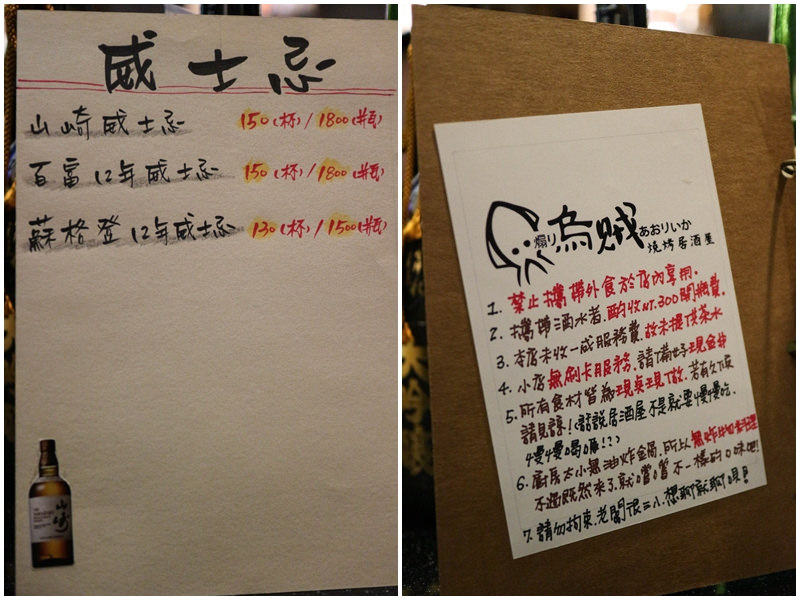 威士忌
山崎威士忌 150(杯)/1800(瓶)
百富12年威士忌 150(杯)/1800(瓶)
蘇格登12年威士忌 130(杯)/1500(瓶)
山崎
煽り烏賊あおりいか
燒烤居酒屋
1. 禁止攜帶外食於店內享用.
2. 攜帶酒水者.酌收NT.300開瓶費.
3. 本店未收一成服務費.故未提供茶水
4. 小店無刷卡服務.請備好現金
5. 所有食材皆為現點現做.若有久候
請見諒!(話說居酒屋不是就要慢慢吃.
慢慢喝嘛!?)
6. 廚房太小無油炸鍋.所以無炸物料理
不過既然來了.就嚐嚐不一樣的口味吧!
7. 請勿拘束.老闆很三八.想聊就聊唄!